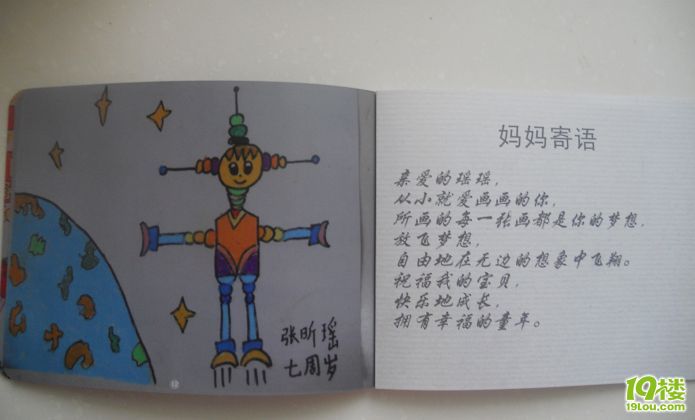 张昕瑶
七周岁
妈妈寄语
亲爱的瑶瑶，
从小就爱画画的你，
所画的每一张画都是你的梦想，
放飞梦想，
自由地在无边的想象中飞翔。
祝福我的宝贝，
快乐地成长，
拥有幸福的童年。
19楼
19lou.com